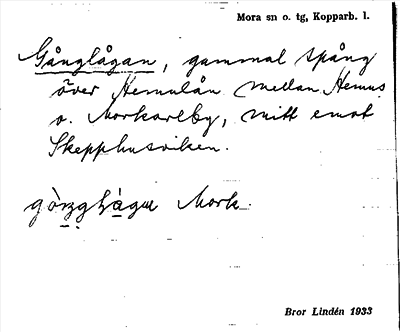 Mora sn o. tg, Kopparb. l.
Gånglågan, gammal spång
över Hemulån mellan Hemus
o. Morkarlby, mitt emot
Skepphusviken.
Mork.
Bror Lindén 1933